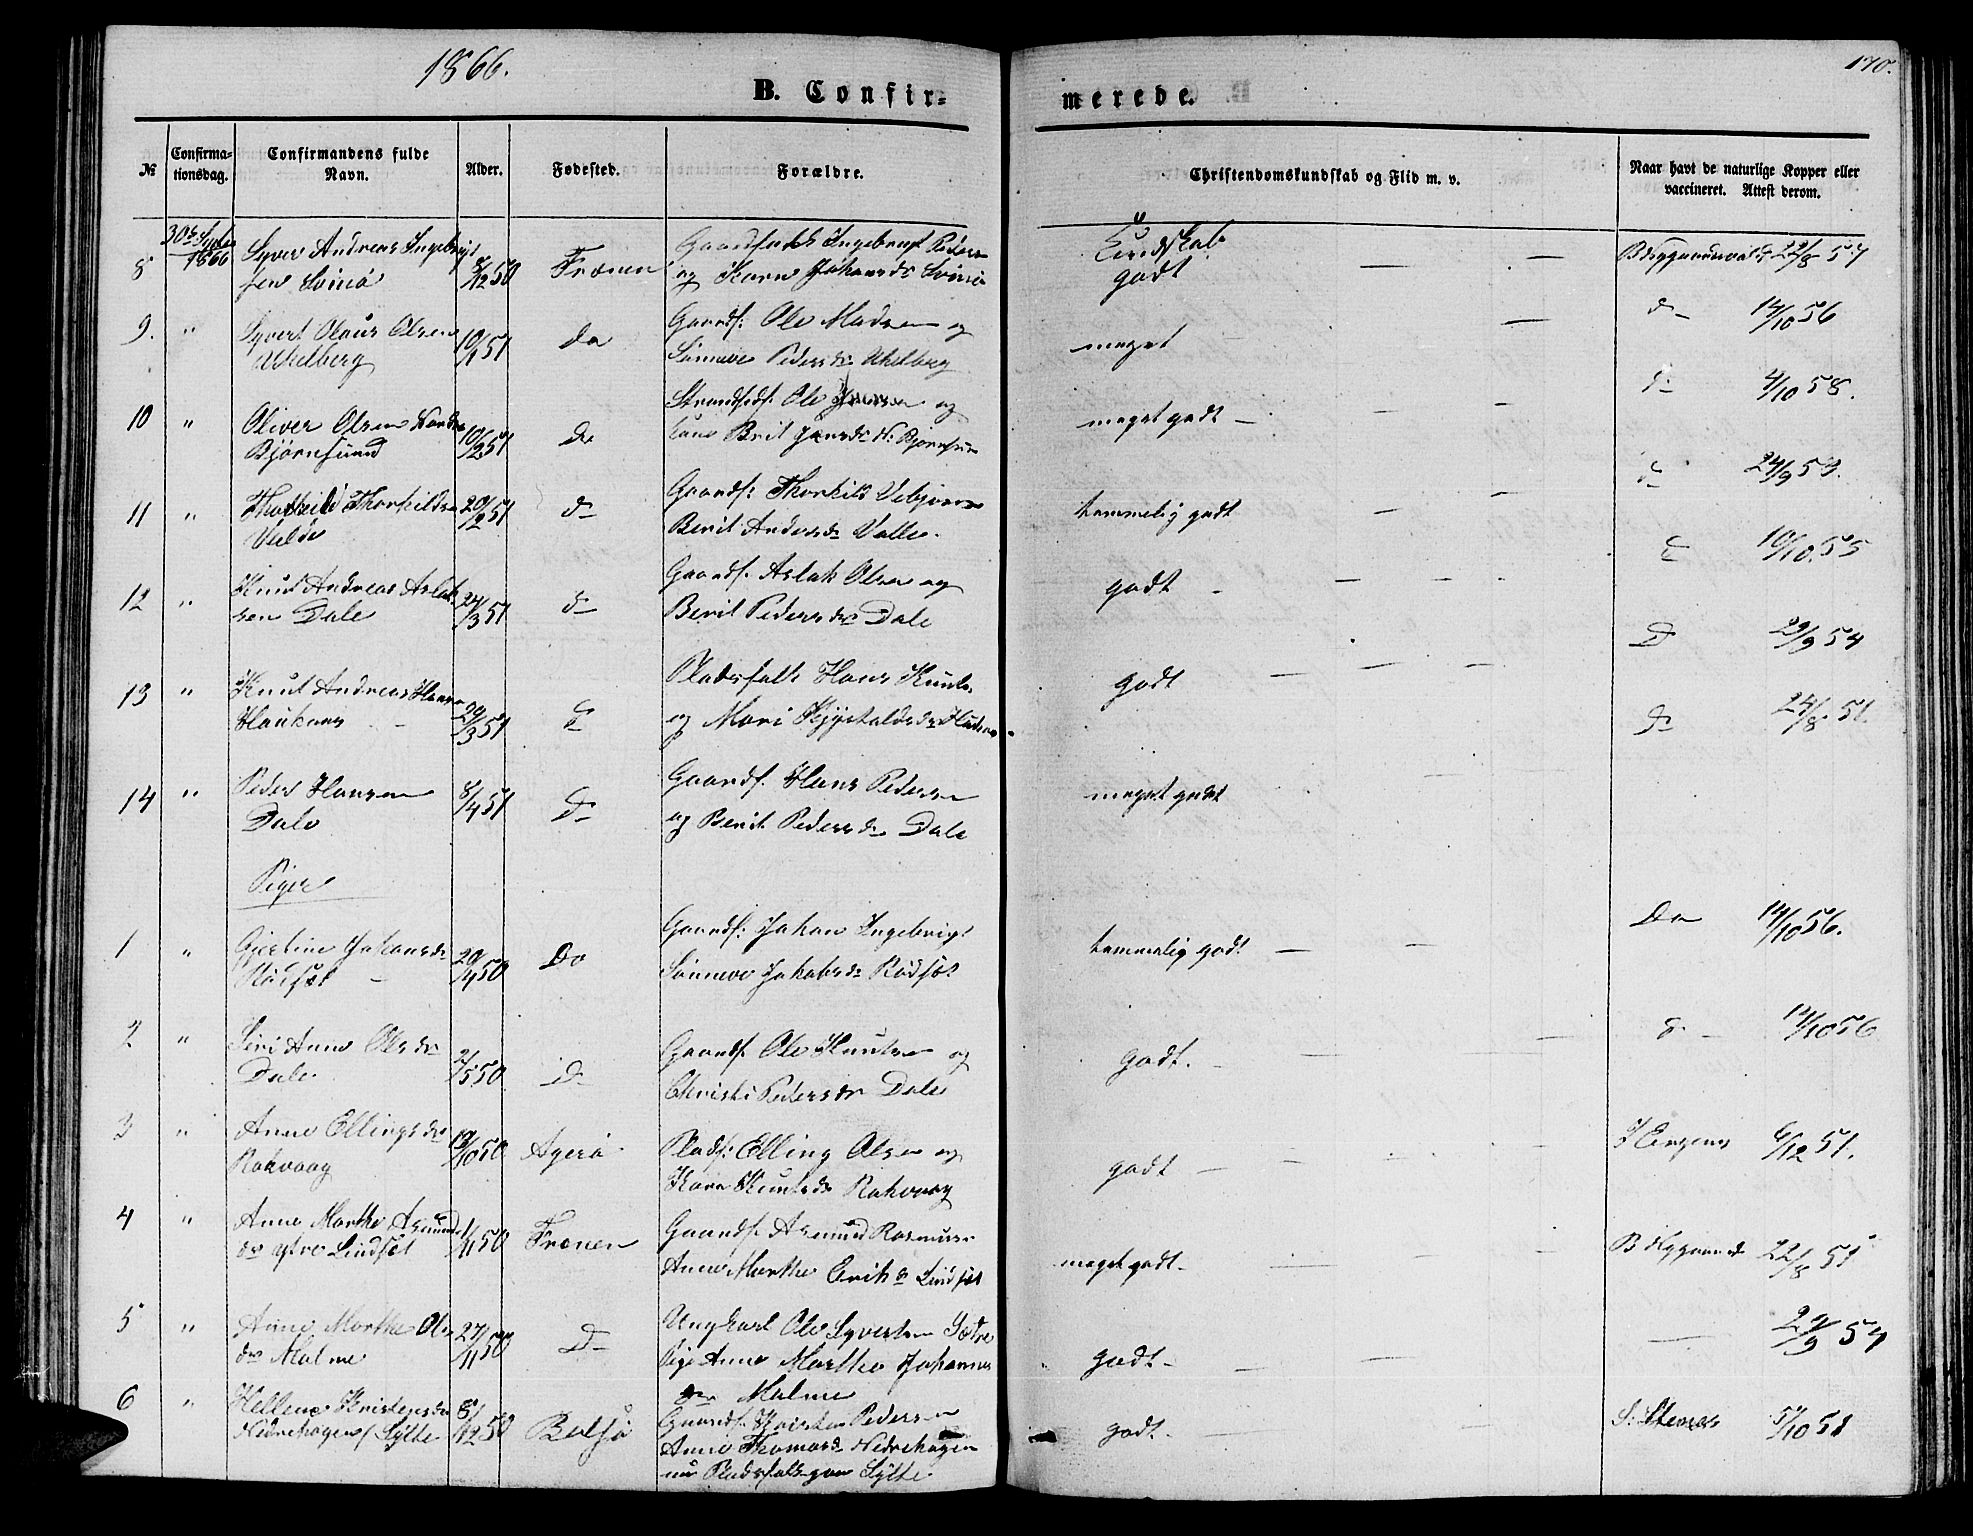 1866.
170.
B. Confir-
merede.
№
Confirma-
tionsdag.
Confirmandens fulde
Navn.
Alder.
Fødested.
Forældre.
Christendomskundskab og Flid m. v.
Naar havt de naturlige Kopper eller
vaccineret. Attest derom.
8
1866
Syver Andreas Ingebrigt
sen Svinø
8/12 50
Frænen
Gaardfolk Ingebrigt Peders
og Karn Johansdr Svinø
Kundskab
godt
22/8 57
9.
"
Syvert Olaus Olsen
10/1 51
Do
Gaardf: Ole Madsen og
Synneve Pedersdr
meget
d-
14/10 56
10
"
Oliver Olsen
Bjørnsund
10/2 51
Do
Strandsidf. Ole og
Brit Jonsdr N: Bjørnsun
meget godt
d-
4/10 58.
11
"
Thorkild Thorkildsen
20/2 51
d-
Gaardf: Thorkild
Berit Andersdr Valle.
temmelig godt
d-
24/9 53.
12
"
Knut Andreas Aslak
sen Dale
24/3 51
d-
Gaardf. Aslak Olsen og
Berit Pedersdr Dale
godt
10/10 55
13
"
Knut Andreas Hansen
29/3 51
Pladsfolk Hans Knuts.
og Mari
godt
D
29/9 54
14
"
Peder Hansen
Dale
8/4 51
d-
Gaardf. Hans Pedersen
og Berit Pedersdr Dale
meget godt
d-
24/8 51.
Piger
1
"
Gjertine Johansdr
20/4 50
Do
Gaardf: Johan Ingebrigt
Synneve Jakobsdr Rødsæt
temmelig godt
Do
14/10 56.
2
"
Siri Anne Olsdr
Dale.
2/5 50
D-
Gaardf Ole Knutsen og
Christi Pedersdr Dale
godt.
d-
14/10 56
3
"
Anne Ellingsdr
Rakvaag
19/10 50
Agerø
Pladsf: Elling Olsen og
Kari Knutsdr Rakvaag
godt
6/12 51.
4
"
Anne Marthe Asmund
dr ytre Lindsæt
1/11 50
Frænen
Gaardf. Asmund Rasmusn
Anne Marthe Erikdr Lindsæt
meget godt
22/8 51
5
"
Anne Marthe Ols
dr Malme
27/11 50
D-
Ungkarl Ole Syvertsen Sætre
Pige Anne Marthe Johannes
dr Malme
godt
29/9 54
6
"
Hellene Kristensdr
Nedrehagen / Sylte
8/12 50
Bolsø
Gaardf. Kristen Pedersen
Anne Thomasdr Nedrehagen
nu Pladsfolk paa Sylte.
godt
5/10 51